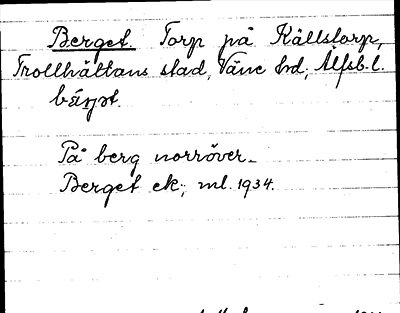 Berget. Torp på Källstorp,
Trollhättans stad, Väne hd, Älfsb. l.
På berg norröver.
Berget ek; ml. 1934.